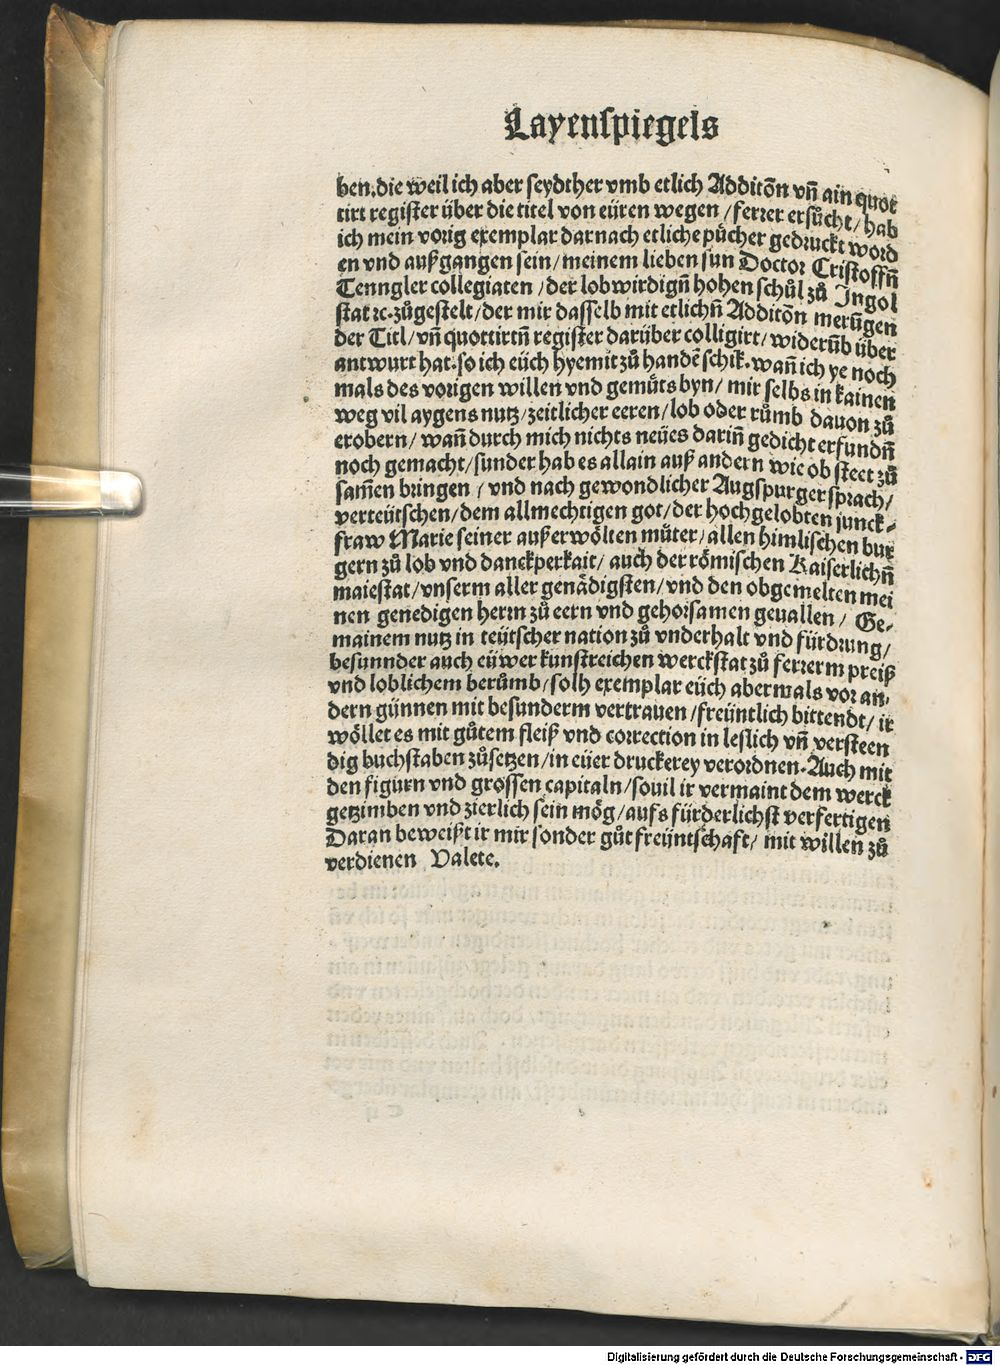 Layenspiegels
ben. die weil ich aber seydther vmb etlich Additõn vñ ain quot
tirt register über die titel von eüren wegen / ferrer ersůcht / hab
ich mein vorig exemplar darnach etliche půcher gedruckt word
en vnd außgangen sein / meinem lieben sun Doctor Cristoffñ
Tenngler collegiaten / der lobwirdigñ hohen schůl zů Ingol
stat ꝛc. zůgestelt / der mir dasselb mit etlichñ Additõn merũgen
der Titl / vñ quottirtñ register darüber colligirt / widerũb über
antwurt hat. so ich eüch hyemit zů handẽ schik. wañ ich ye noch
mals des vorigen willen vnd gemüts byn / mir selbs in kainen
weg vil aygens nutz / zeitlicher eeren / lob oder růmb dauon zů
erobern / wañ durch mich nichts neües dariñ gedicht erfundñ
noch gemacht / sunder hab es allain auß andern wie ob steet zů
sam̃en bringen / vnd nach gewondlicher Augspurger sprach /
verteütschen / dem allmechtigen got / der hochgelobten junck⸗
fraw Marie seiner außerwölten můter / allen himlischen bur
gern zů lob vnd danckperkait / auch der römischen Kaiserlichñ
maiestat / vnserm aller genädigsten / vnd den obgemelten mei
nen genedigen herrn zů eern vnd gehorsamen geuallen / Ge⸗
mainem nutz in teütscher nation zů vnderhalt vnd fürdrung /
besunnder auch eüwer kunstreichen werckstat zů ferrerm preiß
vnd loblichem berůmb / solh exemplar eüch abermals vor an⸗
dern günnen mit besunderm vertrauen / freüntlich bittendt / ir
wöllet es mit gůtem fleiß vnd correction in leslich vñ versteen
dig buchstaben zůsetzen / in eüer druckerey verordnen. Auch mit
den figurn vnd grossen capitaln / souil ir vermaint dem werck
getzimben vnd zierlich sein mög / aufs fürderlichst verfertigen
Daran beweißt ir mir sonder gůt freüntschaft / mit willen zů
verdienen Valete.
Digitalisierung gefördert durch die Deutsche Forschungsgemeinschaft - DFG